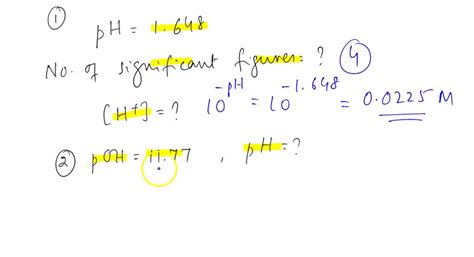 ① pH = 1.648
No. of significant figures ? ④
[H⁺] = ? 10^-pH = 10^-1.648 = 0.0225 M
② pOH = 11.77 , pH = ?